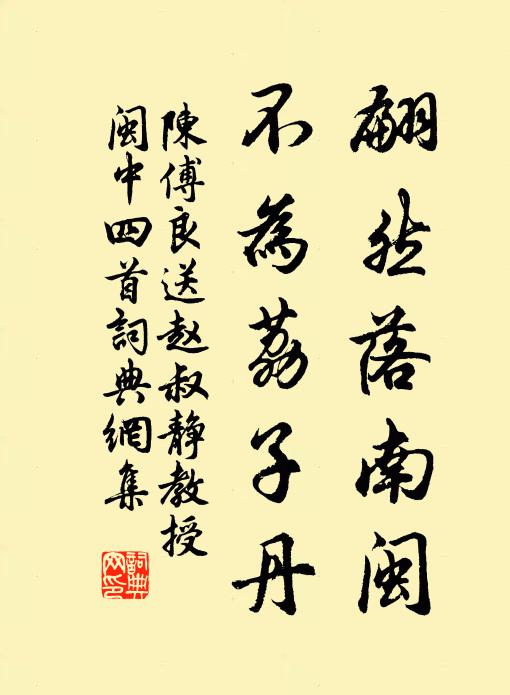 翩然落南闽
不為荔子丹
陳傅良送赵叔静教授
闽中四首詞典網集
詞典网印